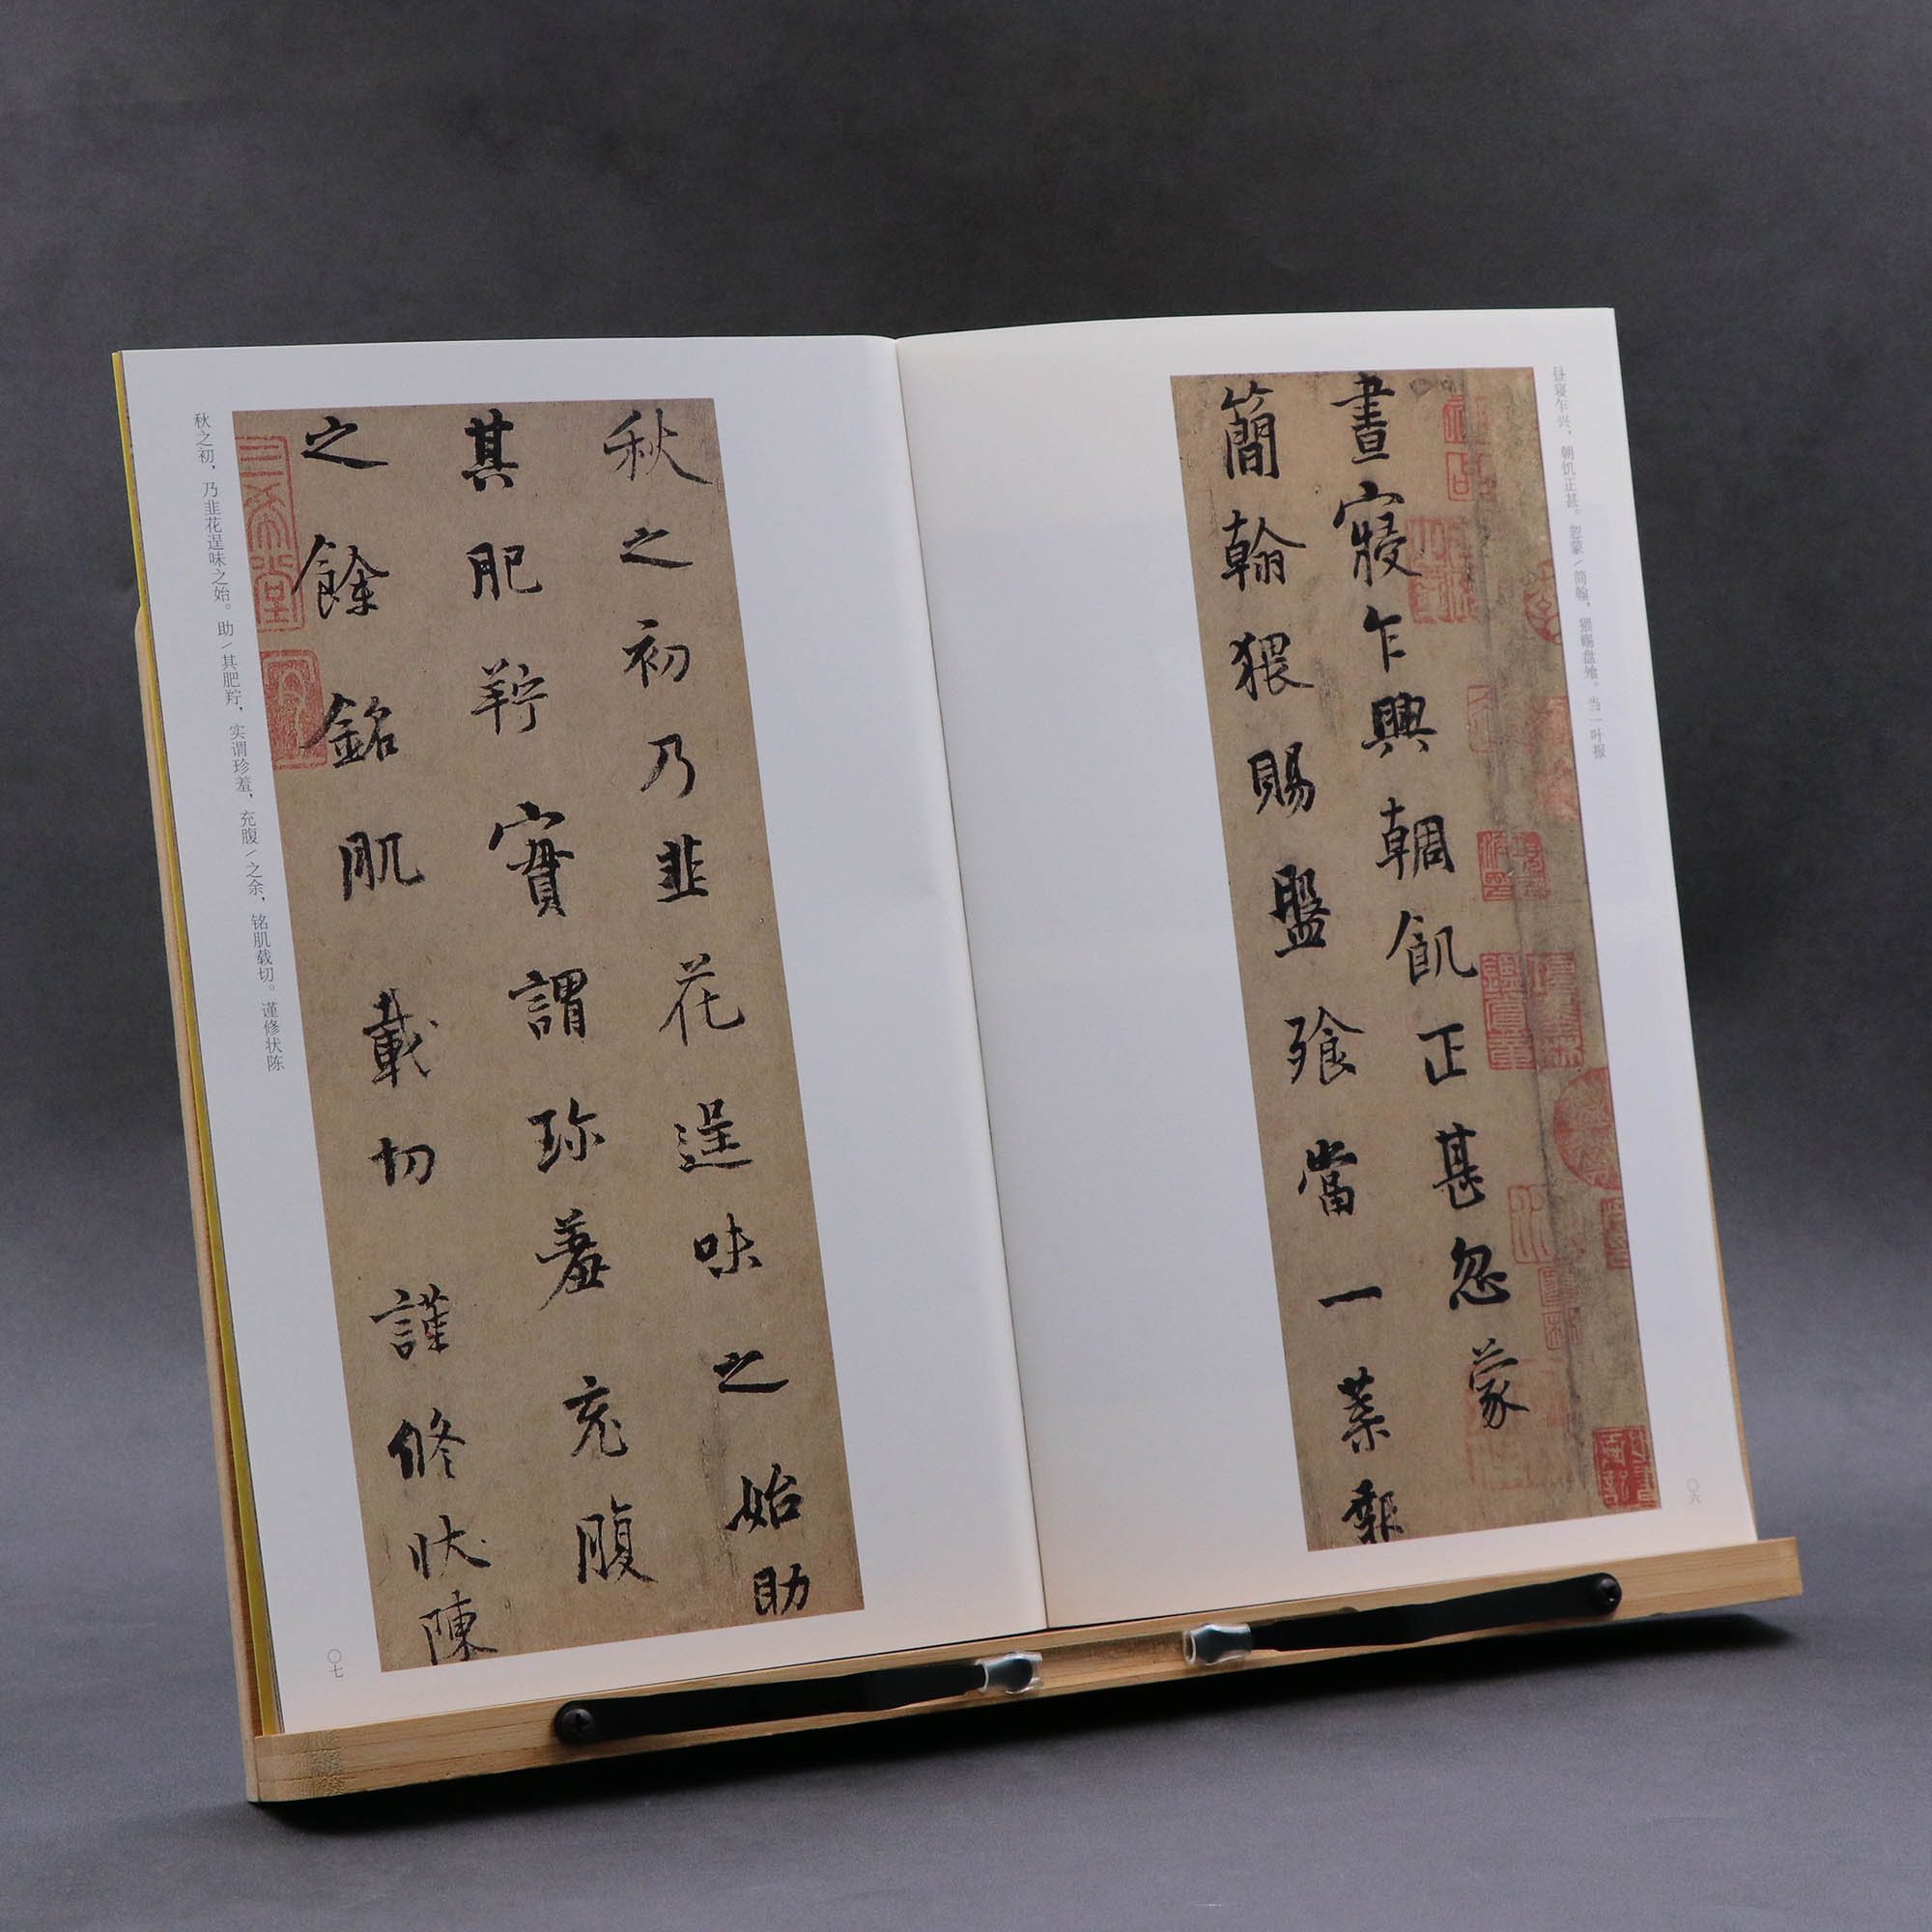 昼寝乍兴，朝饥正甚。忽蒙/简翰，猥赐盘飧。当一叶报
晝寢乍興輖飢正甚忽蒙
簡翰猥賜盤飧當一葉報
〇六
秋之初乃韭花逞味之始助
其肥羜實謂珍羞充腹
之餘銘肌載切謹修狀陳
三希堂
秋之初，乃韭花逞味之始。助/其肥羜，实谓珍羞，充腹/之余，铭肌载切。谨修状陈
〇七